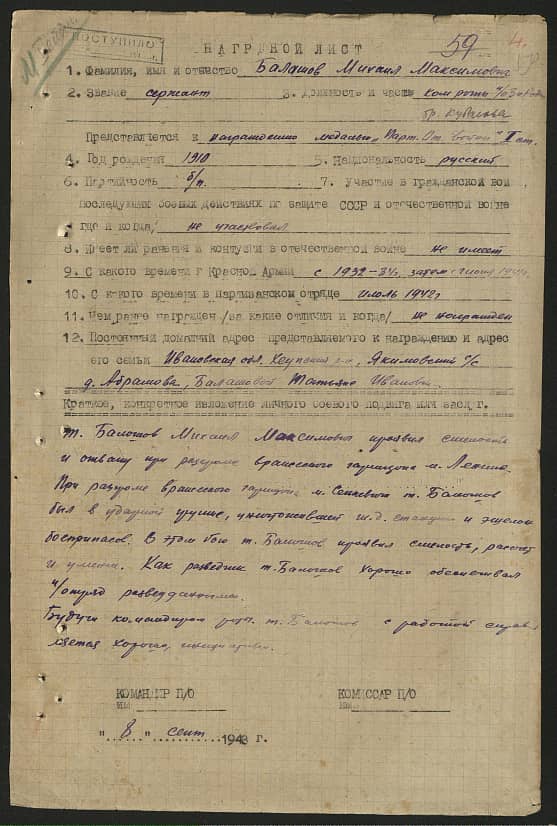 ПОСТУПИЛО
59 4.
НАГРАДНОЙ ЛИСТ
1. Фамилия, имя и отчество Балашов Михаил Максимович
2. Звание сержант 3. Должность и часть ком роты п/о
бр.
Представляется к награждению медалью „Парт. От. войны" II ст.
4. Год рождения 1910 5. Национальность русский
6. Партийность б/п. 7. Участие в гражданской вой
последующих боевых действиях по защите СССР и отечественной войне
где и когда/ не участвовал
8. Имеет ли ранения и контузии в отечественной войне не имеет
9. С какого времени г Красной Армии с 1932-34, затем с июня 1941
10. С какого времени в партизанском отряде июль 1942г
11. Чем ранее награжден /за какие отличия и когда/ не награжден
12. Постоянный домашний адрес представляемого к награждению и адрес
его семьи Ивановская обл. р-н, Якимовский с/с
д. Абрашова, Балашовой Татьяне Ивановн.
Краткое, конкретное изложение личного боевого подвига или заслуг.
т. Балашов Михаил Максимович проявил смелость
и отвагу при разгроме вражеского гарнизона м. Ленино.
При разгроме вражеского гарнизона м. Сенкевичи т. Балашов
был в ударной группе, уничтожившей ж.д. станцию и эшелон
боеприпасов. В этом бою т. Балашов проявил смелость,
и умение. Как разведчик т. Балашов хорошо обеспечивал
п/отряд разведданными.
Будучи командиром роты т. Балашов с работой справ
ляется хорошо,
КОМАНДИР П/О КОМИССАР П/О
" 8 " сент 1943 г.